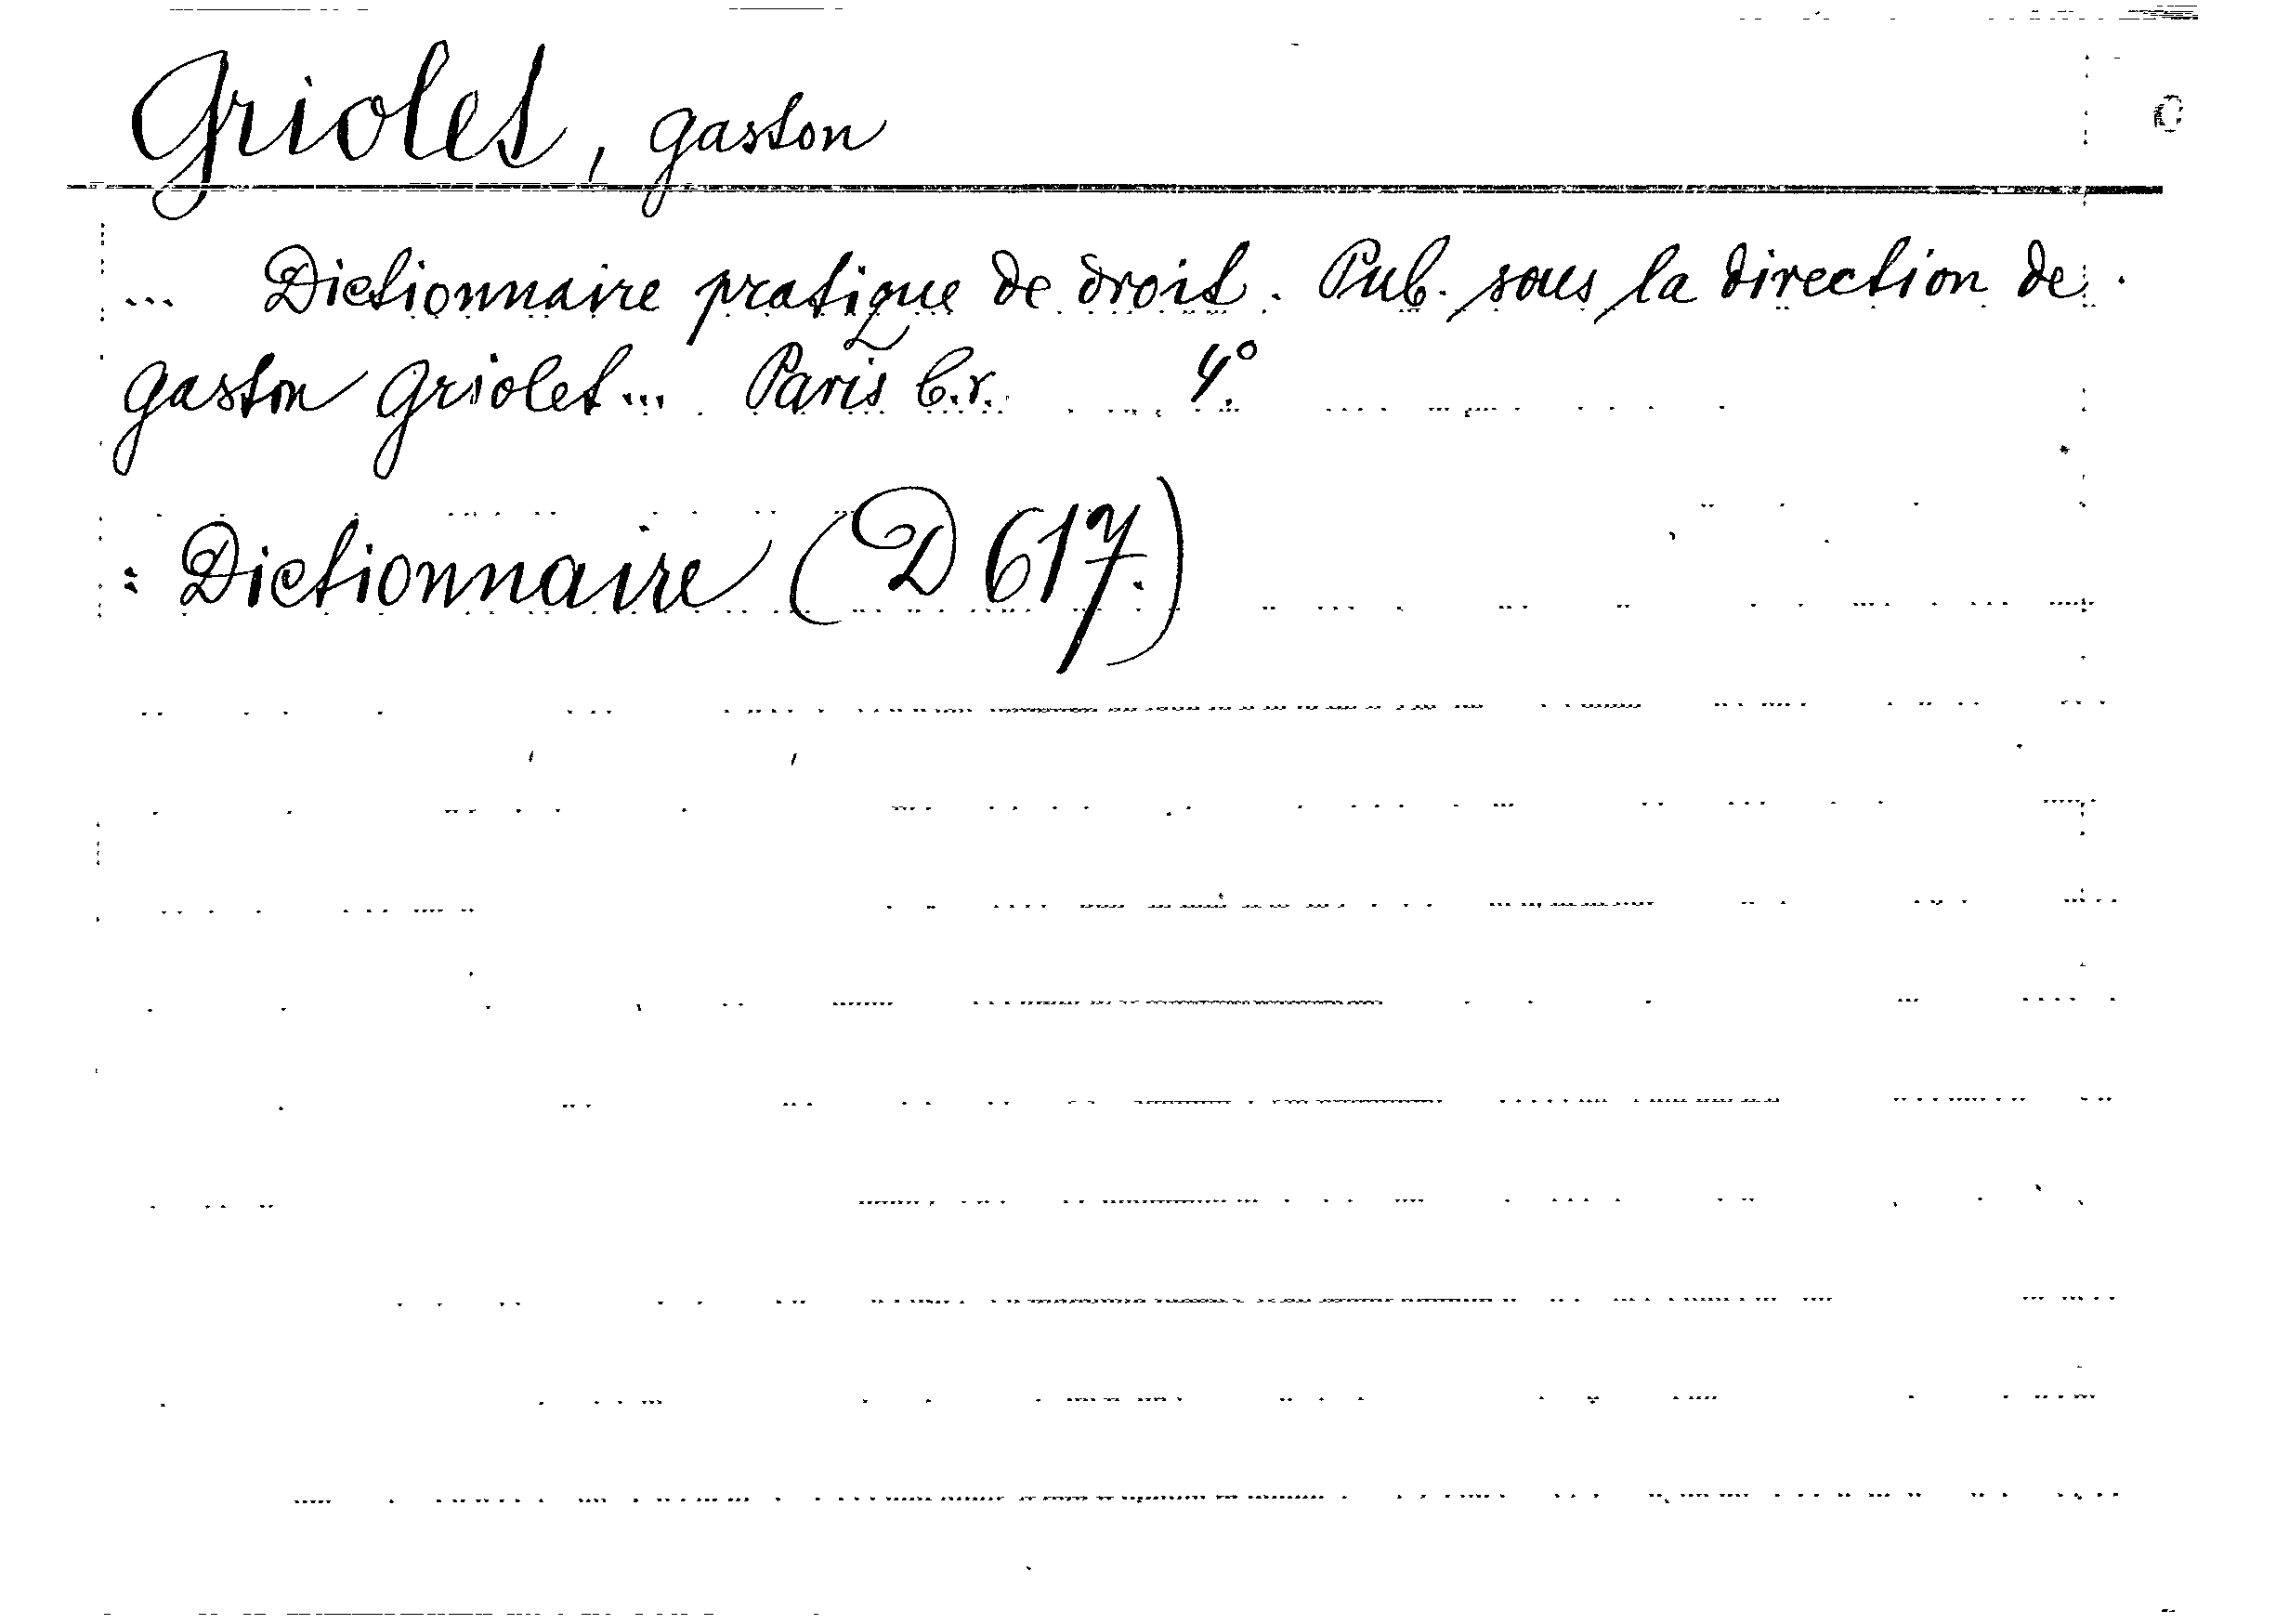 Griolet, Gaston
... Dictionnaire pratique de droit. Pub. sous la direction de
Gaston Griolet... Paris b.r. 4°.
= Dictionnaire (D 617.)